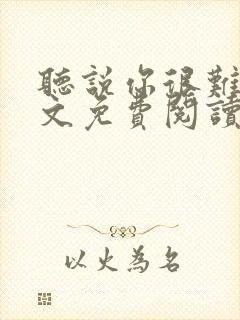 聽說你很難
文免費閱讀
以火為名